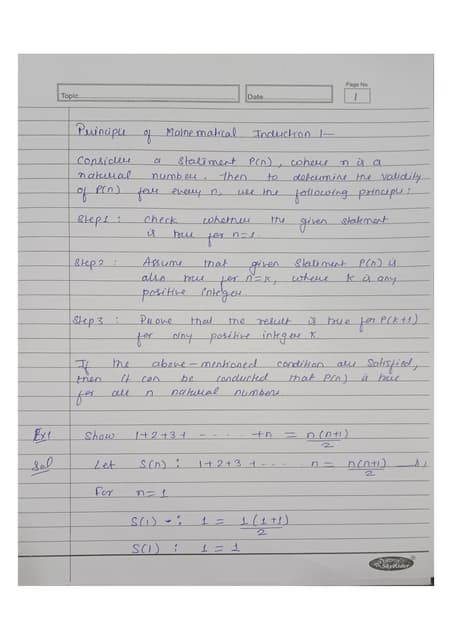 Page No.
Topic
Date
1
Principle of Mathematical Induction :-
Consider a statement P(n), where n is a
natural number. Then to determine the validity
of P(n) for every n, use the following principle :
Step1 : Check whether the given statement
is true for n=1.
Step2 : Assume that given statement P(n) is
also true for n=k, where k is any
positive integer.
Step 3 : Prove that the result is true for P(k+1)
for any positive integer k.
If the above-mentioned condition are satisfied,
then it can be concluded that P(n) is true
for all n natural numbers
Ex1 Show 1+2+3+ ----- +n = n(n+1)/2
Sol Let S(n) : 1+2+3+---- n = n(n+1)/2
For n=1
S(1) : 1 = 1(1+1)/2
S(1) : 1 = 1
SkyRider